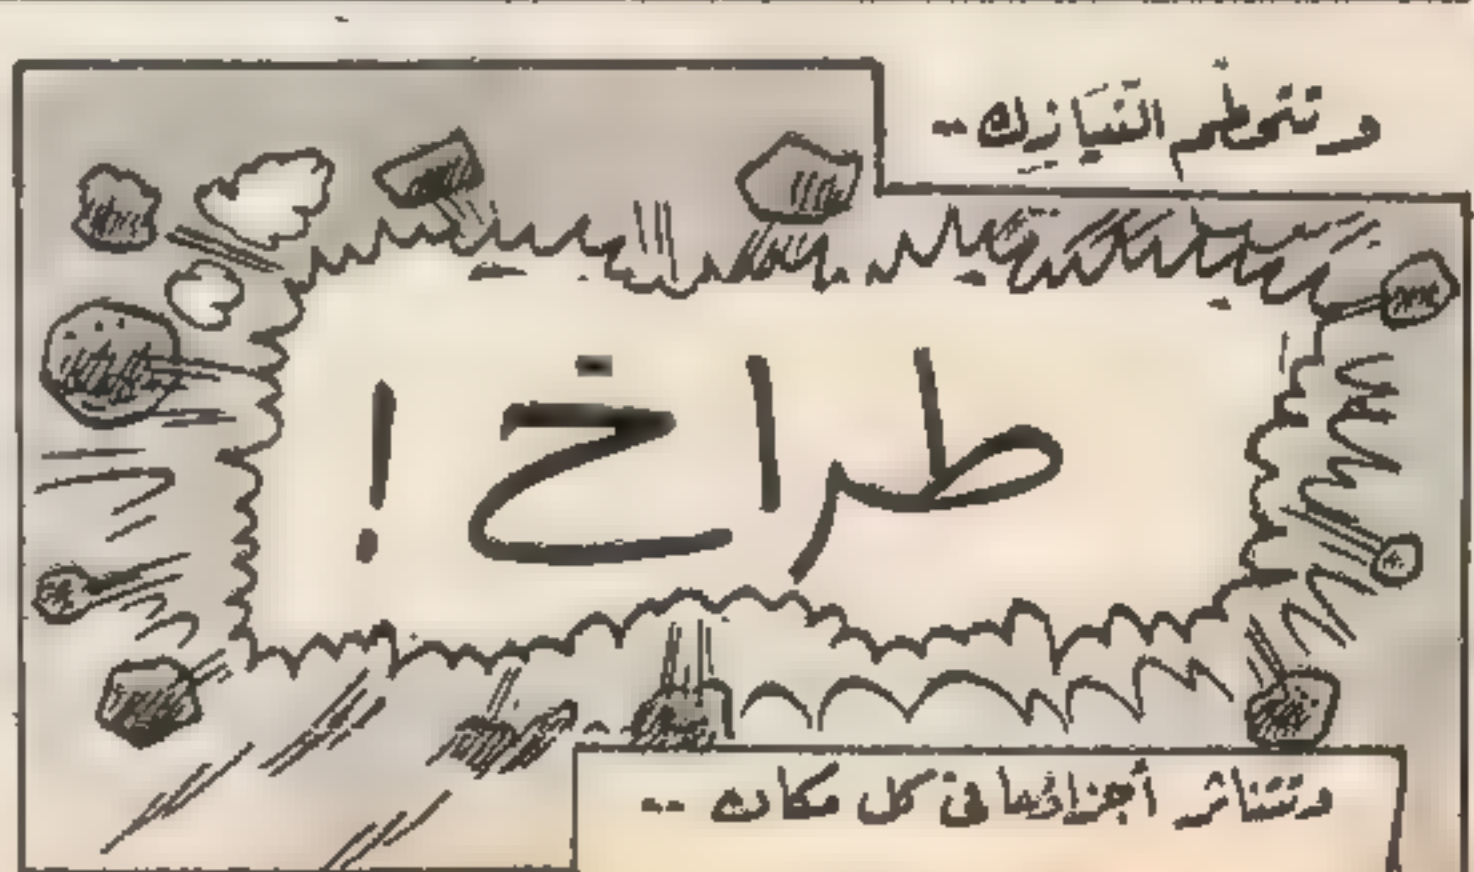 وتتحطم النيازك --
طراخ!
وتتناثر أجزاؤها فى كل مكان --